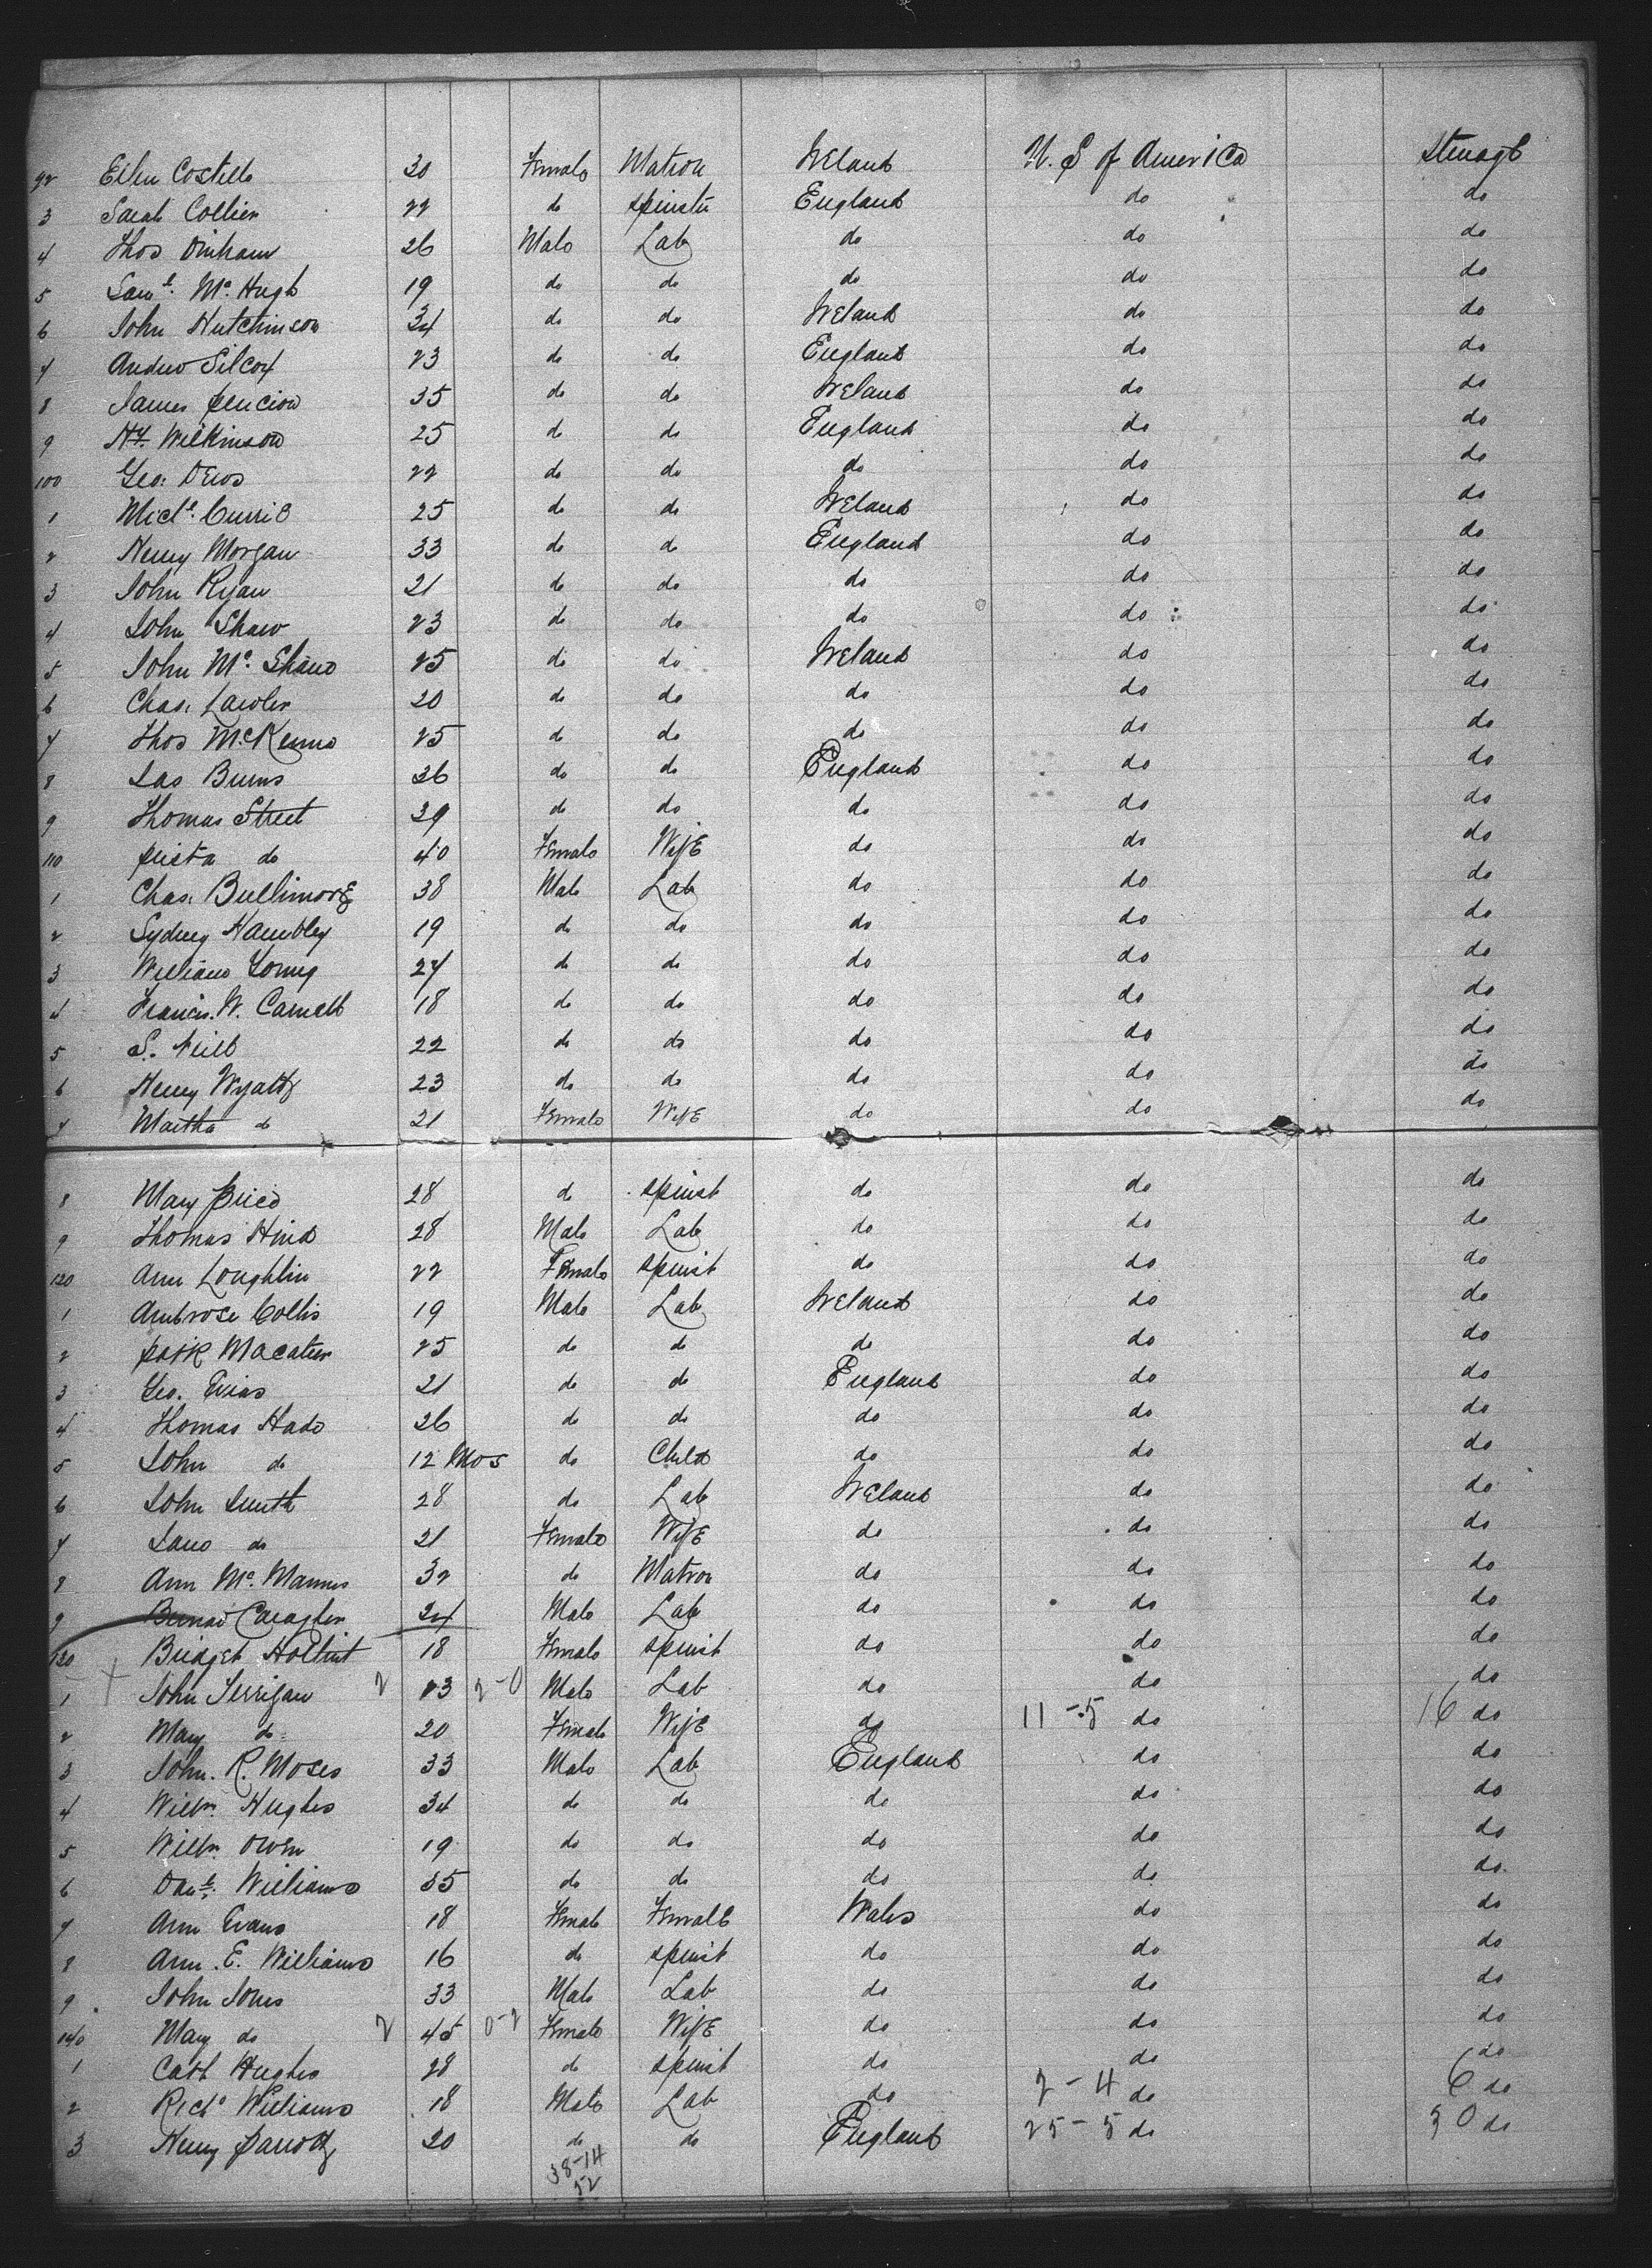 92 Ellen Costello 30 Female Matron Ireland U. S of America SteragE
3 Sarah Collier 22 do Spinstr England do do
4 Thos Dinham 26 Male Lab do do do
5 Saml. Mc. Hugh 19 do do do do do
6 John Hutchinson 34 do do Ireland do do
7 Andrew Silcox 23 do do England do do
8 James 35 do do Ireland do do
9 Hy. Wilkinson 25 do do England do do
100 Geo. 22 do do do do do
1 Michl. Currie 25 do do Ireland do do
2 Henry Morgan 33 do do England do do
3 John Ryan 21 do do do do do
4 John Shaw 23 do do do do do
5 John Mc. Shane 25 do do Ireland do do
6 Chas. Lawler 20 do do do do do
7 Thos McKenna 25 do do do do do
8 Jas Burns 26 do do England do do
9 Thomas Street 39 do do do do do
110 do 40 Female WifE do do do
1 Chas. BullimorE 38 Male Lab do do do
2 Sydney Hambley 19 do do do do do
3 William Young 27 do do do do do
4 Francis. W. Camell 18 do do do do do
5 S. Neill 22 do do do do do
6 Henry Wyatt 23 do do do do do
7 Martha do 21 Female WifE do do do
8 Mary Price 28 do Spinst do do do
9 Thomas Hind 28 Male Lab do do do
120 Ann Loughlin 22 Female Spinst do do do
1 Ambrose Collis 19 Male Lab Ireland do do
2 Patk Macateer 25 do do do do do
3 Geo. 21 do do England do do
4 Thomas Hade 26 do do do do do
5 John do 12 Mos do Child do do do
6 John Smith 28 do Lab Ireland do do
7 Jane do 21 Female WifE do do do
8 Ann Mc. Manus 32 do Matron do do do
9 24 Male Lab do do do
130 Bridget 18 Female Spinst do do do
1 John 2 23 2-0 Male Lab do do do
2 Mary do 20 Female WifE do 11-5 do 16 do
3 John. R. Moses 33 Male Lab England do do
4 Willm. Hughes 34 do do do do do
5 Willm. Owen 19 do do do do do
6 Danl. Williams 35 do do do do do
7 Ann Evans 18 Female FemalE Wales do do
8 Ann. E. Williams 16 do Spinst do do do
9 John Jones 33 Male Lab do do do
140 Mary do 2 45 0-2 Female WifE do do do
1 Cath Hughes 28 do Spinst do do do
2 Richd Williams 18 Male Lab do 2-4 do 6 do
3 Henry Parrott 20 do do England 25-5 do 30 do
38-14
52